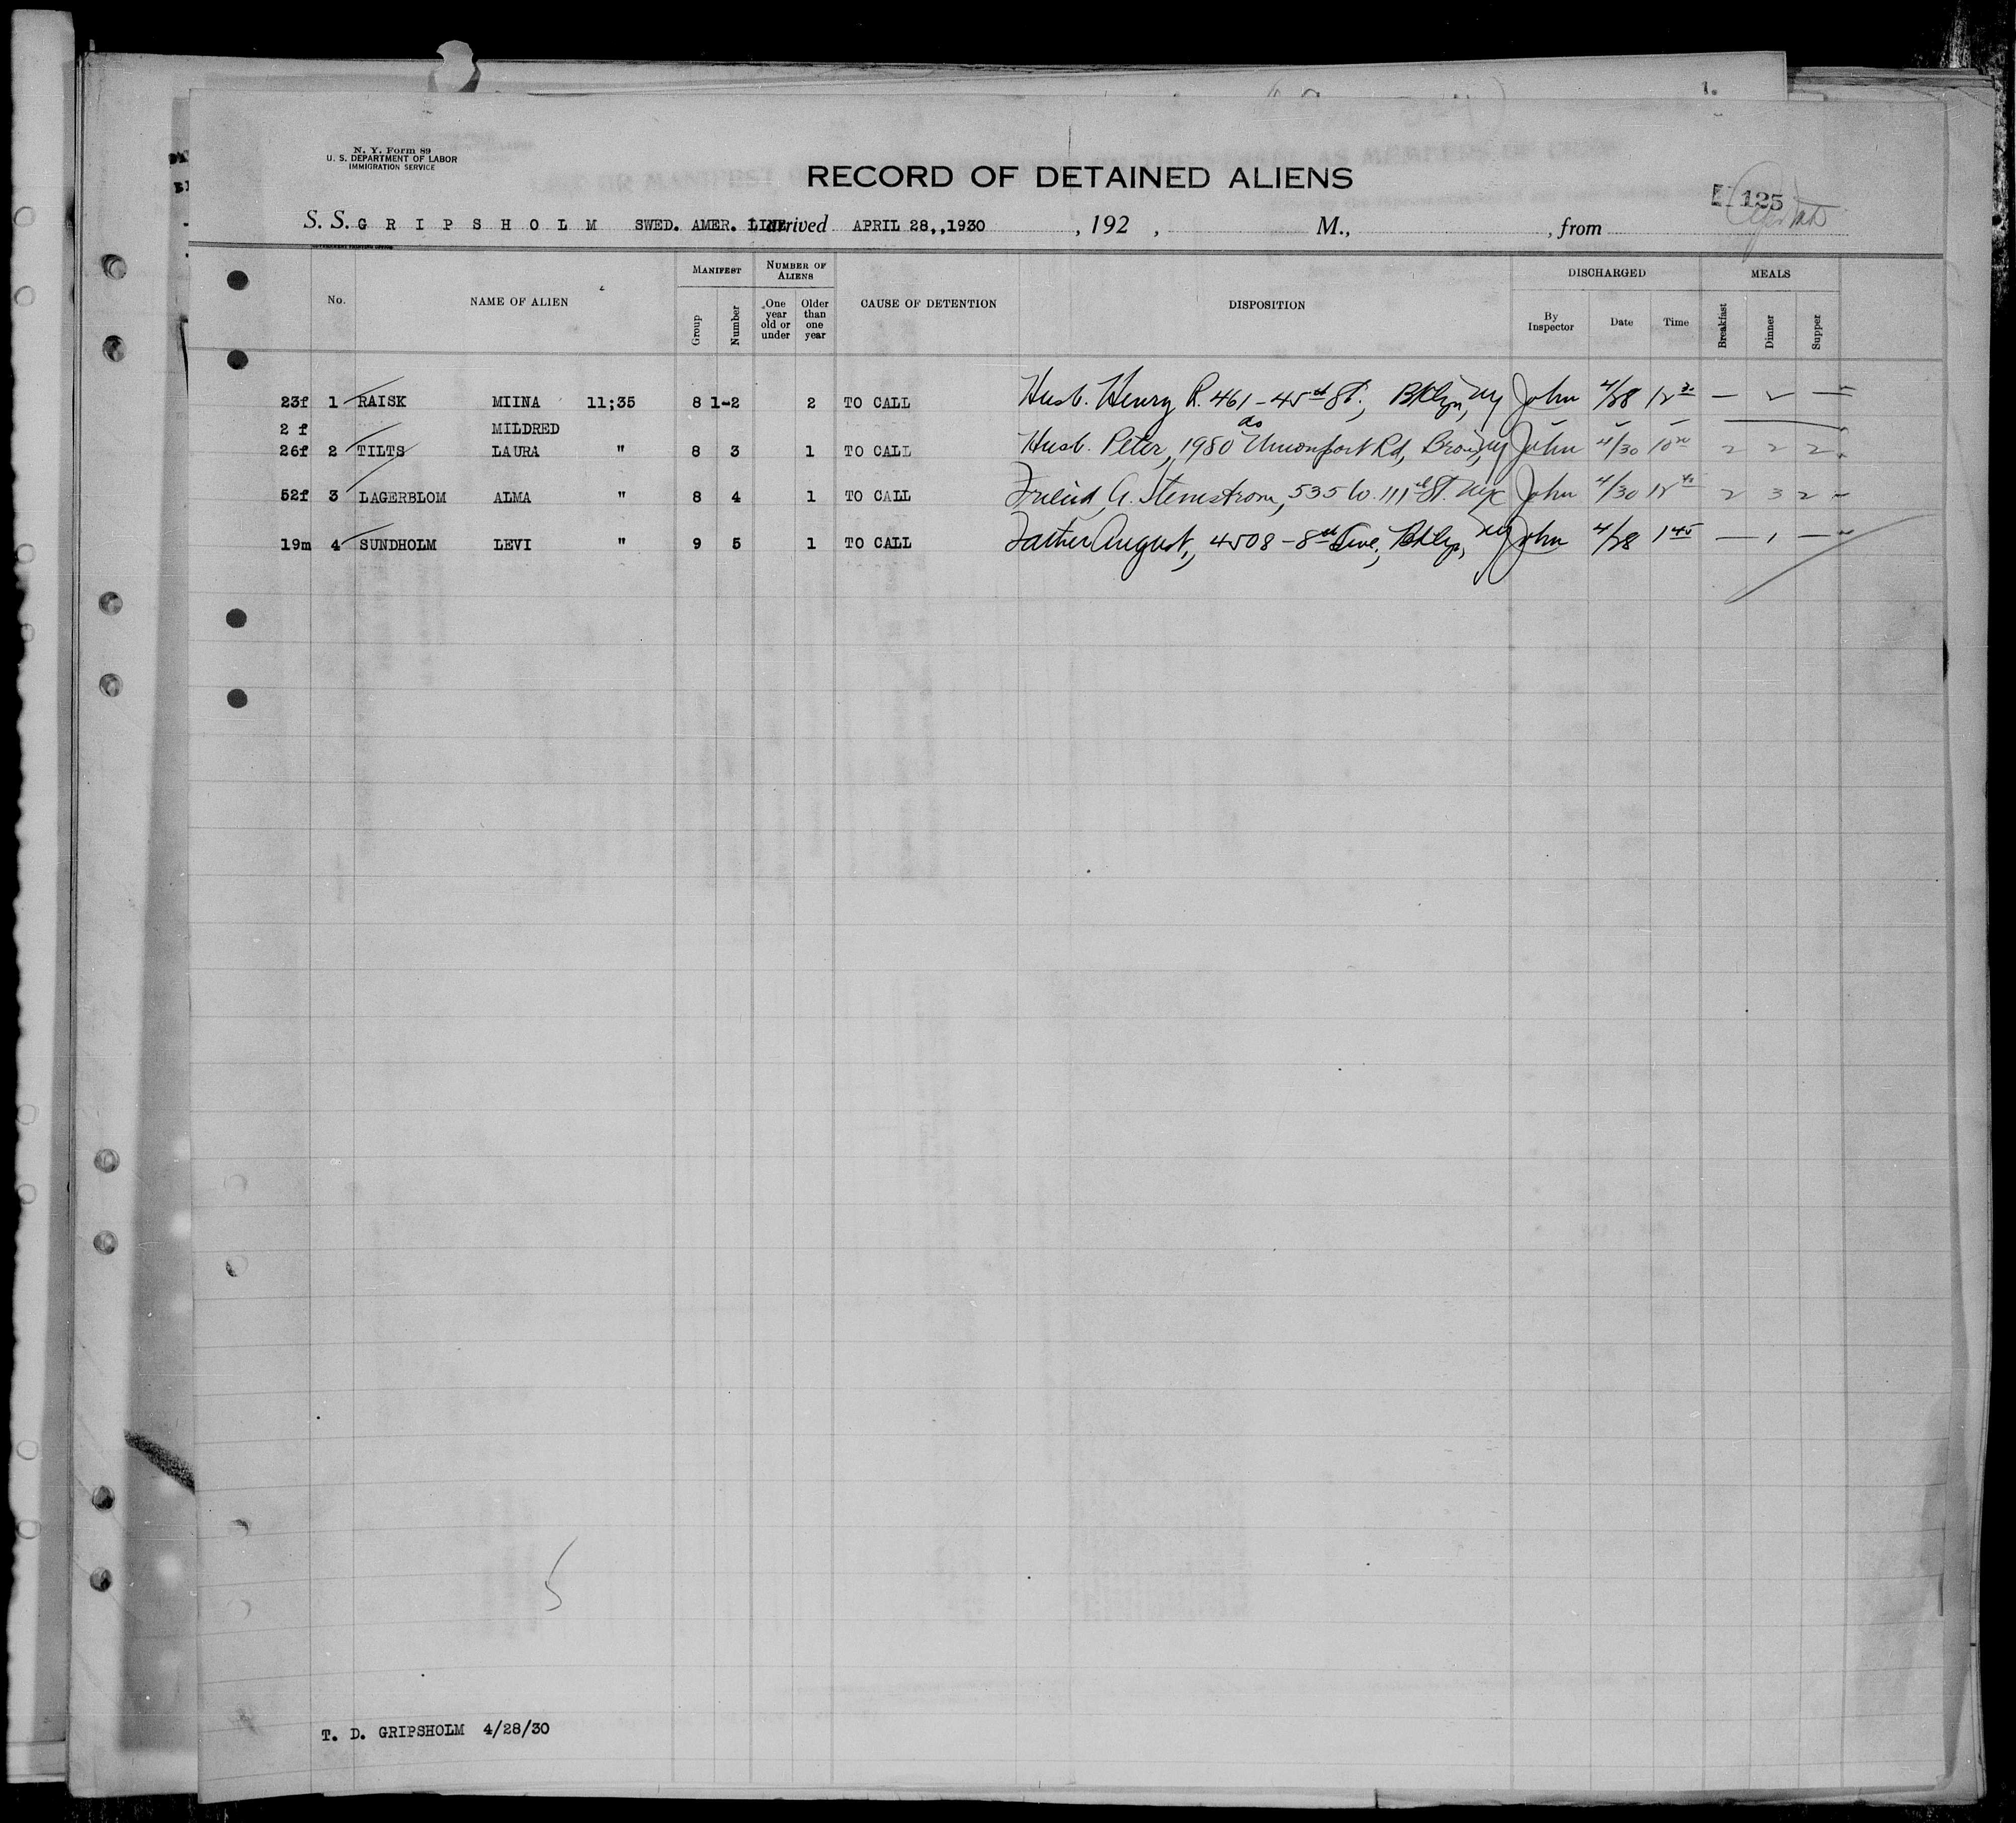 N. Y. Form 89
U. S. DEPARTMENT OF LABOR
IMMIGRATION SERVICE
RECORD OF DETAINED ALIENS
125
S. S. G R I P S H O L M SWED. AMER. LINE arrived APRIL 28,,1930 , 192 , M., , from
No. NAME OF ALIEN MANIFEST NUMBER OF ALIENS CAUSE OF DETENTION DISPOSITION DISCHARGED MEALS
Group Number One year old or under Older than one year By Inspector Date Time Breakfast Dinner Supper
23f 1 RAISK MIINA 11;35 8 1-2 2 TO CALL Husb. Henry R. 461 - 45th St., Bklyn, NY John 4/28 12 30 — 2 —
2 f MILDRED
26f 2 TILTS LAURA " 8 3 1 TO CALL Husb. Peter, 1980 Unionport Rd, Bronx, NY John 4/30 10 20 2 2 2
52f 3 LAGERBLOM ALMA " 8 4 1 TO CALL Friend, G. Stenstrom, 535 W. 111th St. NYC John 4/30 12 2 3 2
19m 4 SUNDHOLM LEVI " 9 5 1 TO CALL Father August, 4508 - 8th Ave, Bklyn, NY John 4/28 1 45 — 1 —
5
T. D. GRIPSHOLM 4/28/30